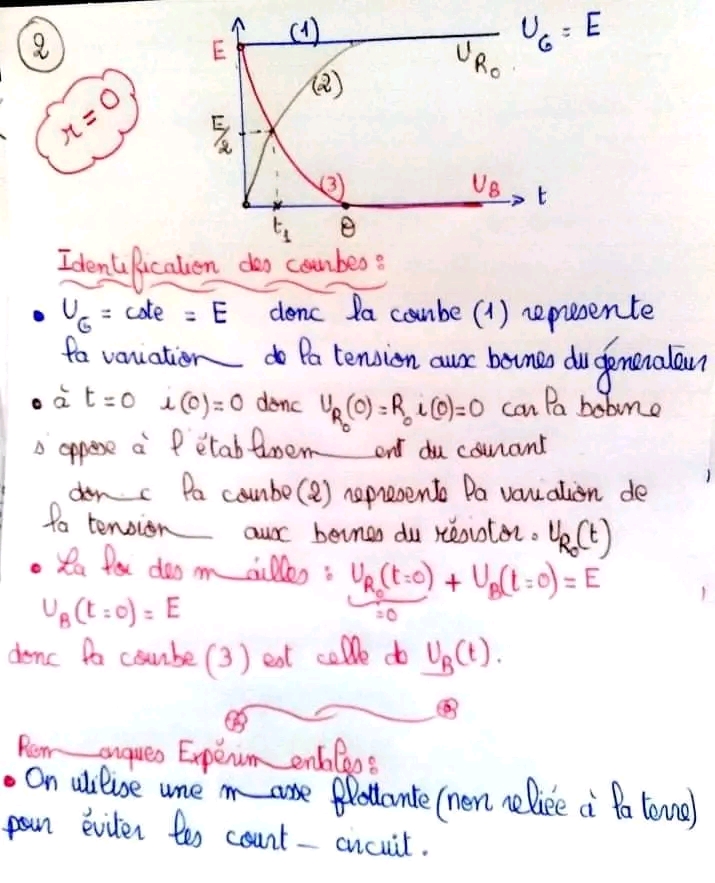 2
r = 0
E
(1)
U_G = E
U_R₀
(2)
E/2
(3)
U_B
t
t₁
θ
Identification des courbes :
• U_G = cste = E donc la courbe (1) represente
la variation de la tension aux bornes du génerateur
• à t = 0 i(0) = 0 donc U_R₀(0) = R₀ i(0) = 0 car la bobine
s'oppose à l'établissement du courant
donc la courbe (2) represente la variation de
la tension aux bornes du résistor. U_R₀(t)
• La loi des mailles : U_R₀(t=0) + U_B(t=0) = E
=0
U_B(t=0) = E
donc la courbe (3) est celle de U_B(t).
Remarques Expérimentales :
• On utilise une masse flottante (non reliée à la terre)
pour éviter les court - circuit.